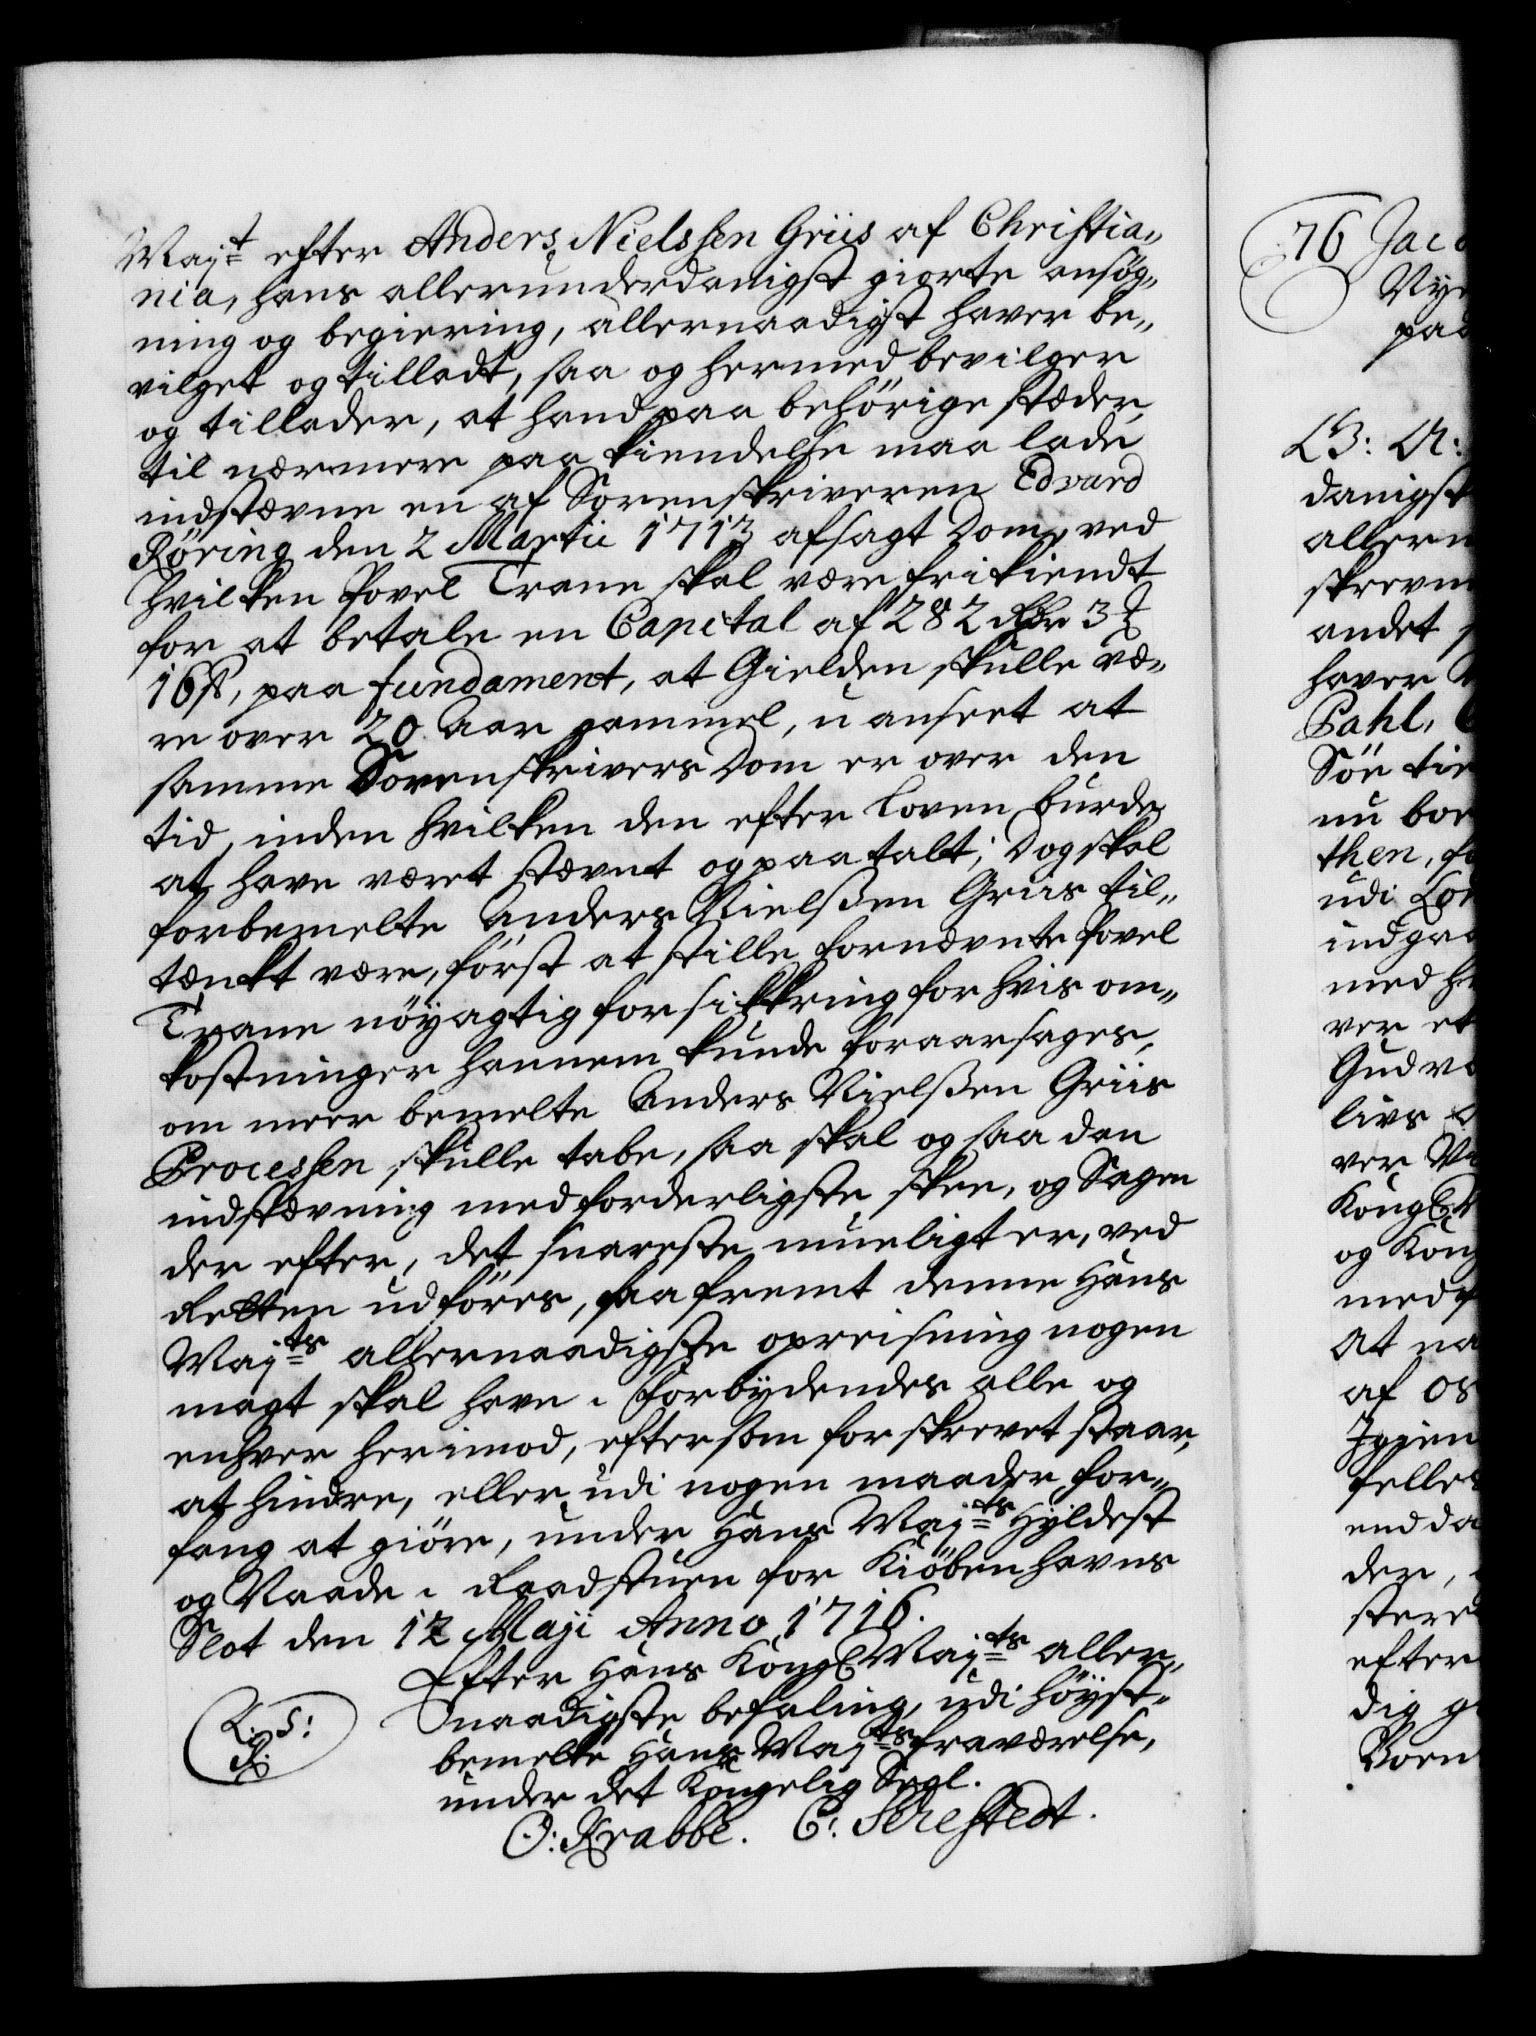 Mayt efter Anders Nielssen Griis af Christia„
nia, hans allerunderdanigst giorte ansøg„
ning og begiering, allernaadigst haver be„
vilget og tilladt, saa og hermed bevilger
og tillader, at hand paa behörige stæder,
til nærmere paa kiendelse maa lade
indstævne en af Sorenskriveren Edvard
Röring den 2 Martii 1713 afsagt Dom, ved
hvilken Povel Trane skal være frikiendt
for at betale en Capital af 282 Rdr 3
16 s, paa fundament, at Gielden skulle væ„
re over 20 Aar gammel, uanseet at
samme Sorenskrivers Dom er over den
tid, inden hvilken den efter Loven burde
at have været stævnt og paatalt; Dog skal
forbemelte Anders Nielssen Griis til„
tænkt være, först at stille fornævnte Povel
Trane nöyagtig forsikkring for hvis om„
kostninger hannem kunde foraarsages,
om meer bemelte Anders Nielssen Griis
Processen skulle tabe, saa skal og saa den
indstævning med forderligste skee, og Sagen
der efter, det snareste mueligt er, ved
Retten udföres, saa fremt denne Hans
Mayts allernaadigste opreisning nogen
magt skal have. Forbydendes alle og
enhver herimod, eftersom forskrevet staar,
at hindre, eller udi nogen maader for„
fang at giöre, under Hans Mayts Hyldest
og Naade. Raadstuen for Kiöbenhavns
Slot den 12 Maji Anno 1716.
Efter Hans Kongl Mayts aller„
naadigste befaling, udi höyst„
bemelte Hans Mayts fraværelse,
under det Kongelig Segl.
L. S:
R:
O: Krabbe. C: Sehestedt.
76 Jac
Nye
paa
B: A:
danigst
allern
skrevn
andet
haver
Pahl,
Söe tie
nu boe
then, fo
udi
indgaa
med h
ver et
Gud
livs
ver
Kongl
og Kong
med
at na
af os
Igien
felles
end da
der,
stere
efter
dig g
Boen